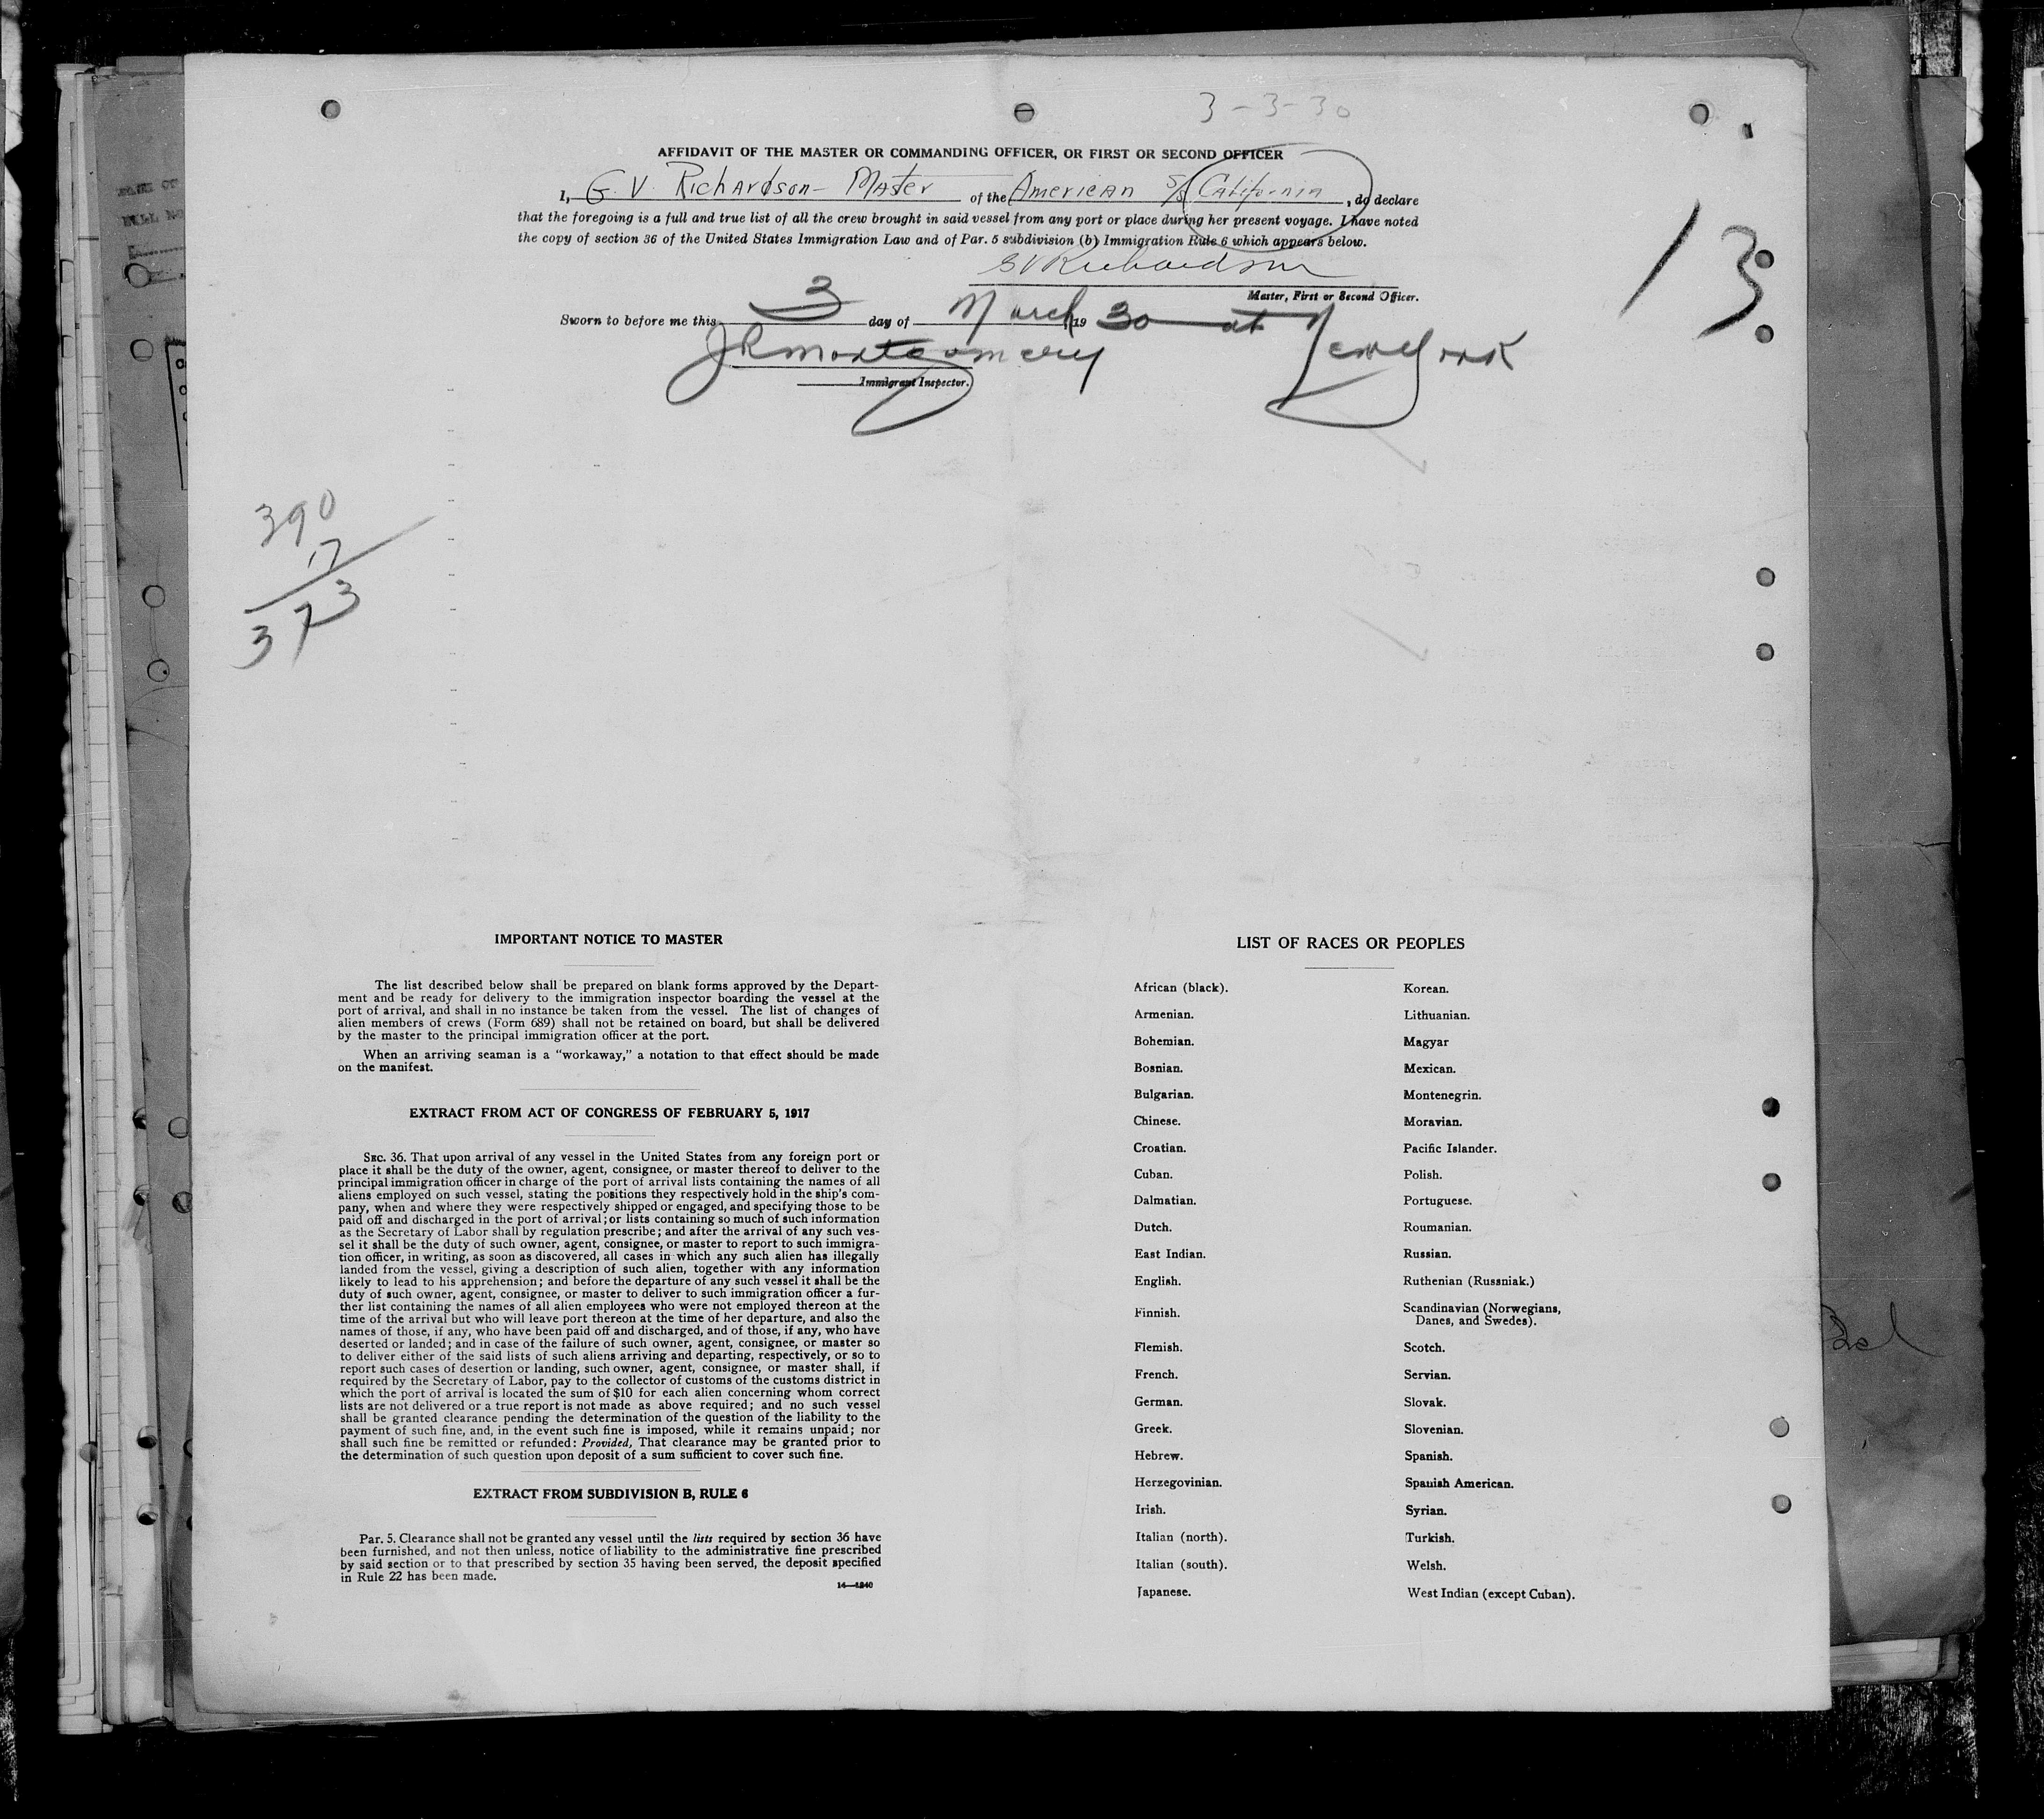 3-3-30
AFFIDAVIT OF THE MASTER OR COMMANDING OFFICER, OR FIRST OR SECOND OFFICER
I, G. V. Richardson - Master of the American S/S California, do declare
that the foregoing is a full and true list of all the crew brought in said vessel from any port or place during her present voyage. I have noted
the copy of section 36 of the United States Immigration Law and of Par. 5 subdivision (b) Immigration Rule 6 which appears below.
13
GV Richardson
Master, First or Second Officer.
Sworn to before me this 3 day of March 1930 at New York
JR Montgomery
Immigrant Inspector.
390
17
373
IMPORTANT NOTICE TO MASTER
The list described below shall be prepared on blank forms approved by the Depart-
ment and be ready for delivery to the immigration inspector boarding the vessel at the
port of arrival, and shall in no instance be taken from the vessel. The list of changes of
alien members of crews (Form 689) shall not be retained on board, but shall be delivered
by the master to the principal immigration officer at the port.
When an arriving seaman is a "workaway," a notation to that effect should be made
on the manifest.
EXTRACT FROM ACT OF CONGRESS OF FEBRUARY 5, 1917
SEC. 36. That upon arrival of any vessel in the United States from any foreign port or
place it shall be the duty of the owner, agent, consignee, or master thereof to deliver to the
principal immigration officer in charge of the port of arrival lists containing the names of all
aliens employed on such vessel, stating the positions they respectively hold in the ship's com-
pany, when and where they were respectively shipped or engaged, and specifying those to be
paid off and discharged in the port of arrival; or lists containing so much of such information
as the Secretary of Labor shall by regulation prescribe; and after the arrival of any such ves-
sel it shall be the duty of such owner, agent, consignee, or master to report to such immigra-
tion officer, in writing, as soon as discovered, all cases in which any such alien has illegally
landed from the vessel, giving a description of such alien, together with any information
likely to lead to his apprehension; and before the departure of any such vessel it shall be the
duty of such owner, agent, consignee, or master to deliver to such immigration officer a fur-
ther list containing the names of all alien employees who were not employed thereon at the
time of the arrival but who will leave port thereon at the time of her departure, and also the
names of those, if any, who have been paid off and discharged, and of those, if any, who have
deserted or landed; and in case of the failure of such owner, agent, consignee, or master so
to deliver either of the said lists of such aliens arriving and departing, respectively, or so to
report such cases of desertion or landing, such owner, agent, consignee, or master shall, if
required by the Secretary of Labor, pay to the collector of customs of the customs district in
which the port of arrival is located the sum of $10 for each alien concerning whom correct
lists are not delivered or a true report is not made as above required; and no such vessel
shall be granted clearance pending the determination of the question of the liability to the
payment of such fine, and, in the event such fine is imposed, while it remains unpaid; nor
shall such fine be remitted or refunded: Provided, That clearance may be granted prior to
the determination of such question upon deposit of a sum sufficient to cover such fine.
EXTRACT FROM SUBDIVISION B, RULE 6
Par. 5. Clearance shall not be granted any vessel until the lists required by section 36 have
been furnished, and not then unless, notice of liability to the administrative fine prescribed
by said section or to that prescribed by section 35 having been served, the deposit specified
in Rule 22 has been made.
14—1240
LIST OF RACES OR PEOPLES
African (black).
Armenian.
Bohemian.
Bosnian.
Bulgarian.
Chinese.
Croatian.
Cuban.
Dalmatian.
Dutch.
East Indian.
English.
Finnish.
Flemish.
French.
German.
Greek.
Hebrew.
Herzegovinian.
Irish.
Italian (north).
Italian (south).
Japanese.
Korean.
Lithuanian.
Magyar
Mexican.
Montenegrin.
Moravian.
Pacific Islander.
Polish.
Portuguese.
Roumanian.
Russian.
Ruthenian (Russniak.)
Scandinavian (Norwegians,
Danes, and Swedes).
Scotch.
Servian.
Slovak.
Slovenian.
Spanish.
Spanish American.
Syrian.
Turkish.
Welsh.
West Indian (except Cuban).